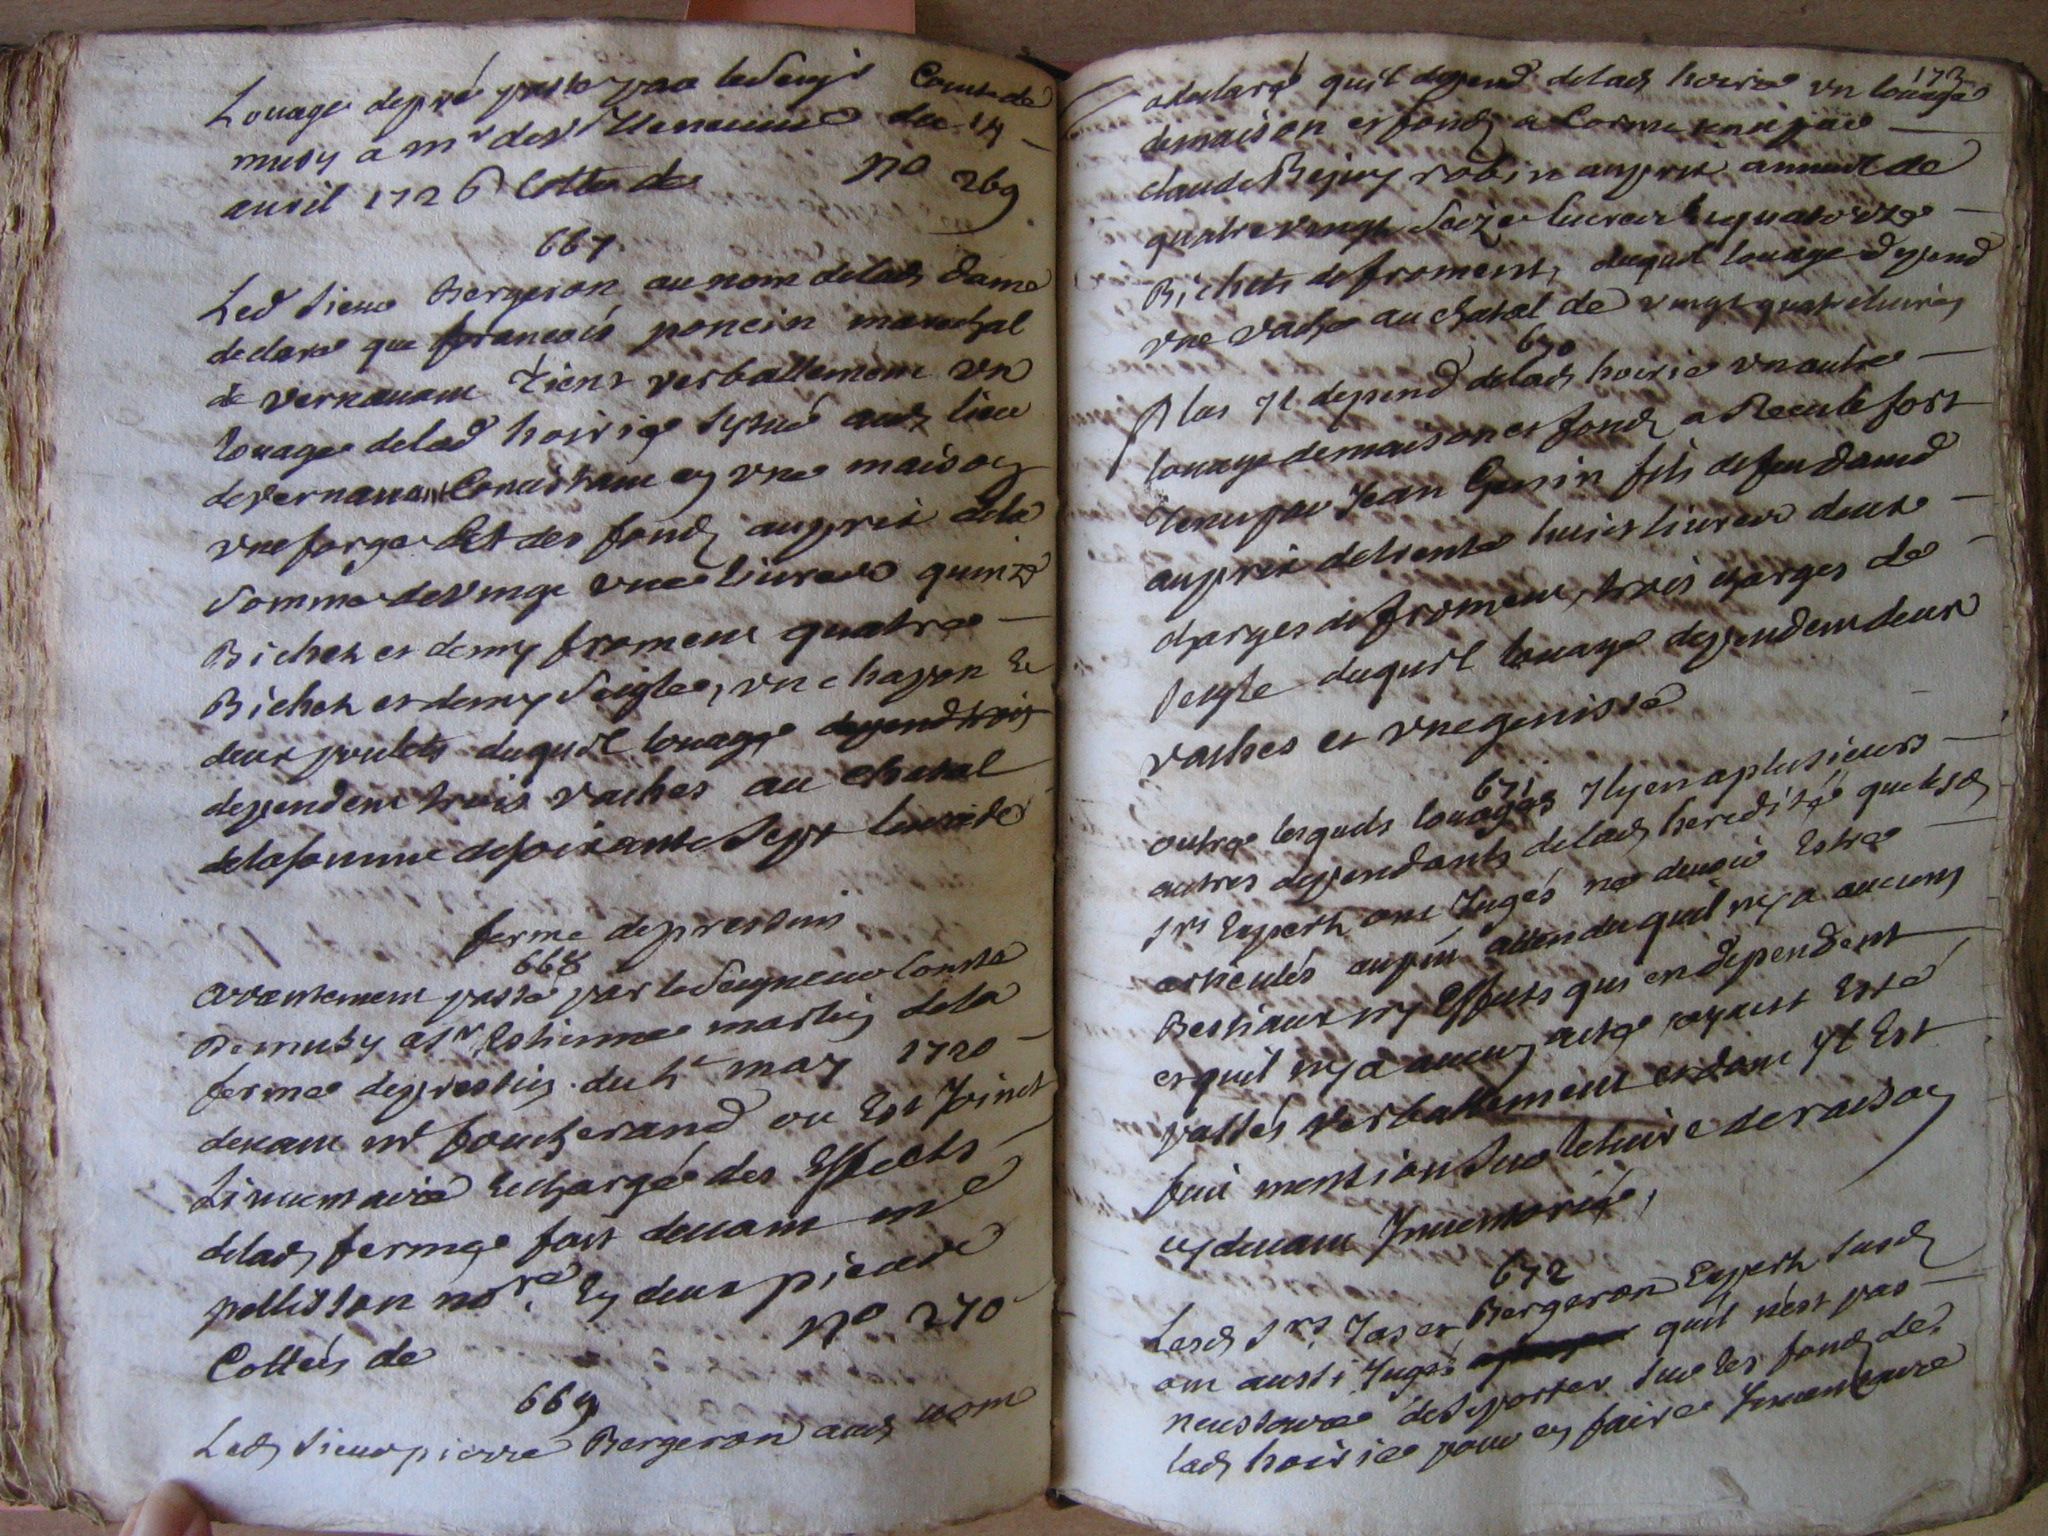 Louage de pré passé par le Seigr Comte de
musy a mr de Villeneuve du 14
avril 1726 Cotté de no 269
667
Led sieur Bergeron au nom delad Dame
declare que francois poncin marechal
de vernouam tient verballement un
louage delad hoirie scitué aud lieu
de vernouam Concistant en une maison
une forge Et des fonds au prix dela
somme de vingt une livres quinze
Bichets et demy froment quatre
Bichets et demy seigle, un chapon Et
deux poulets duquel louage depend trois
dependent trois vaches au chatal
de la somme de soixante sept livres de
ferme de pressins
668
assensement passé par le Seigneur Comte
De musy a sr Estienne martin de la
ferme de pressins du 4e may 1720
devant me foucherand ou Est Joinct
Linventaire Et chargé des Effects
delad ferme fait devant me
pellisson nore. En deux pieces
Cottées de no 270
669
Led sieur pierre Bergeron aud nom
173
a declaré quil depend delad hoirie un louage
de maison et fonds a
claude Bejuy robin au prix annuel de
quatre vingt seize livres Et quatorze
Bichets de froment, duquel louage depend
une vache au chatal de vingt quatre livres
670
Plus Il depend delad hoirie un autre
louage de maison et fonds a Reculefort
tenu par Jean Genin fils de feu David
au prix de trente huict livres deux
charges de froment, trois charges de
seigle duquel louage dependent deux
vaches et une genisse
671
outre lesquels louages Il y en a plusieurs
autres dependants delad heredité que lesd
srs Experts ont Jugés ne devoir Estre
articulés au pñt attendu quil ny a aucuns
Bestiaux ny Effects qui en dependent
et quil ny a aucun acte ayant Esté
passés verballement et dont Il Est
fait mention sur le livre de raison
cy devant Inventorié,
672
Lesd srs Jas et Bergeron Experts susd
ont aussi Jugés quil nest pas
necessaire de se porter sur les fonds de
lad hoirie pour en faire Inventaire